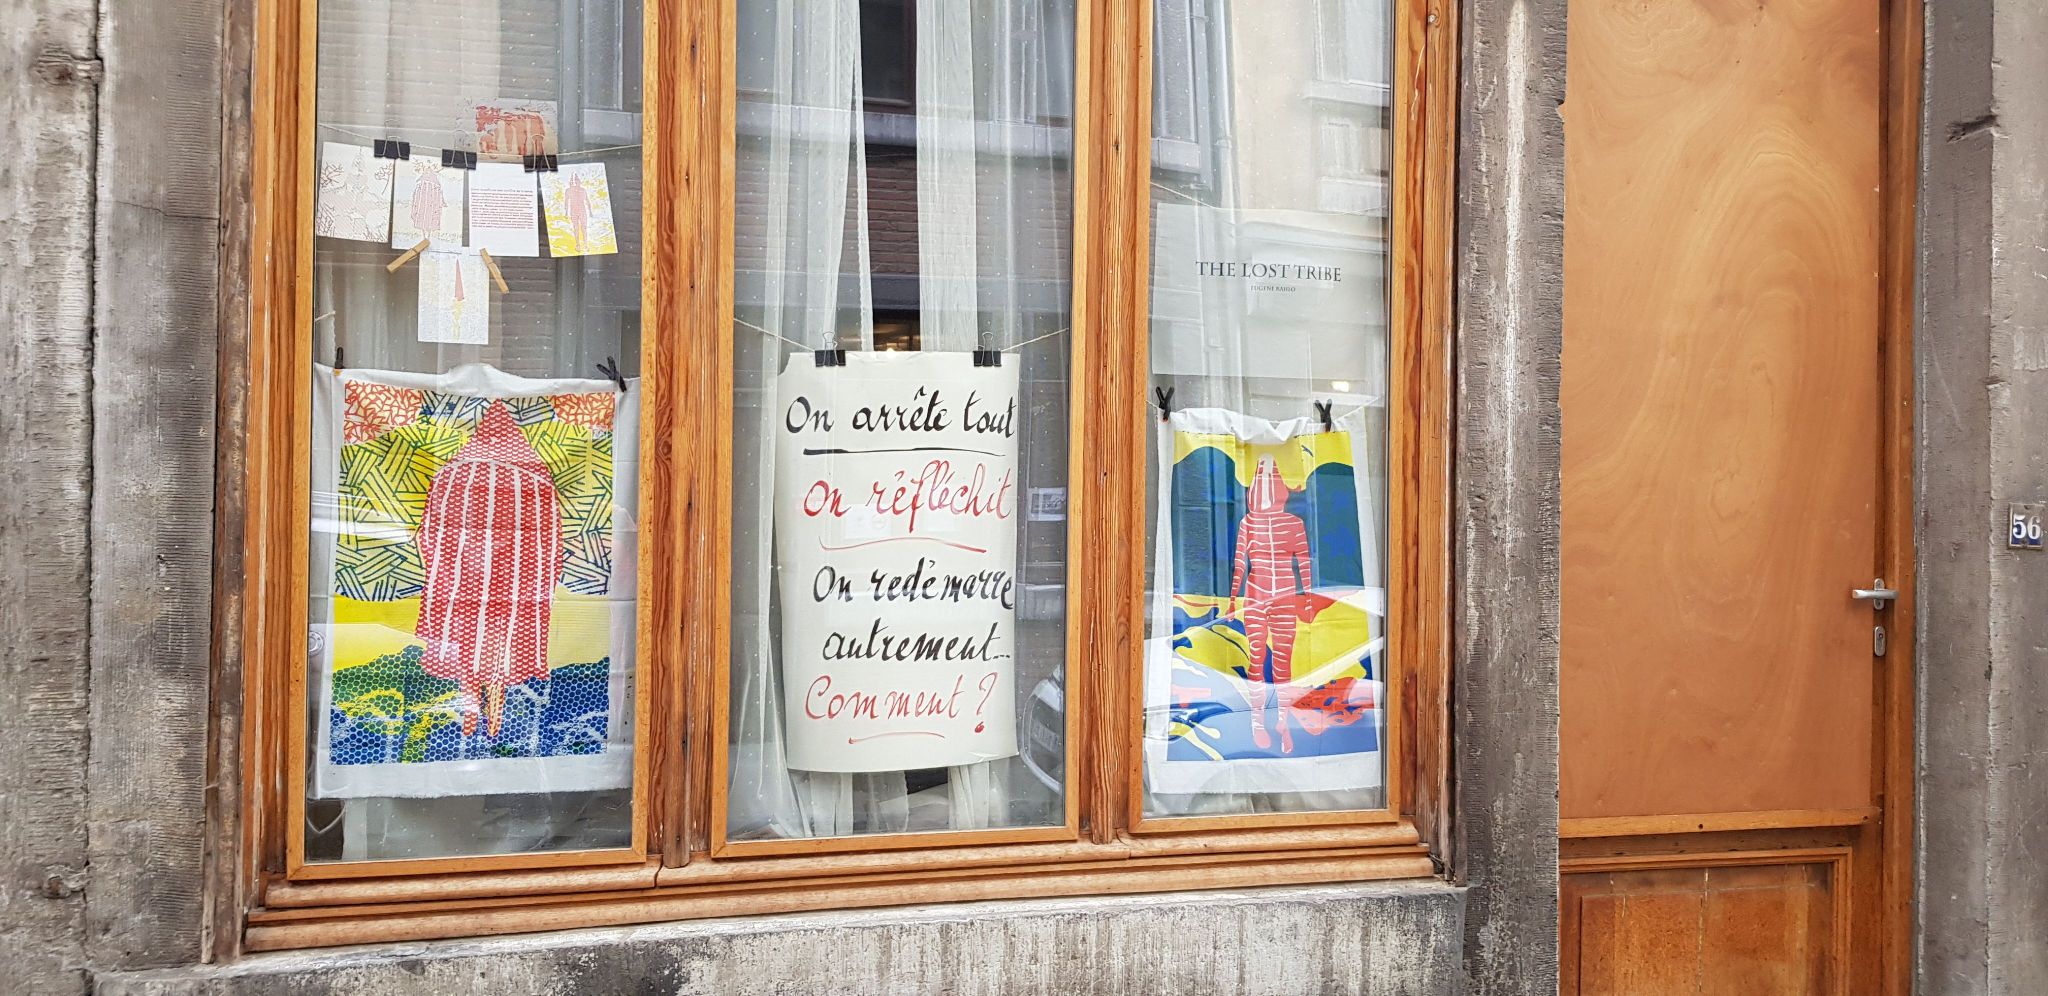 On arrête tout
On réfléchit
On redémarre
autrement...
Comment ?
THE LOST TRIBE
56